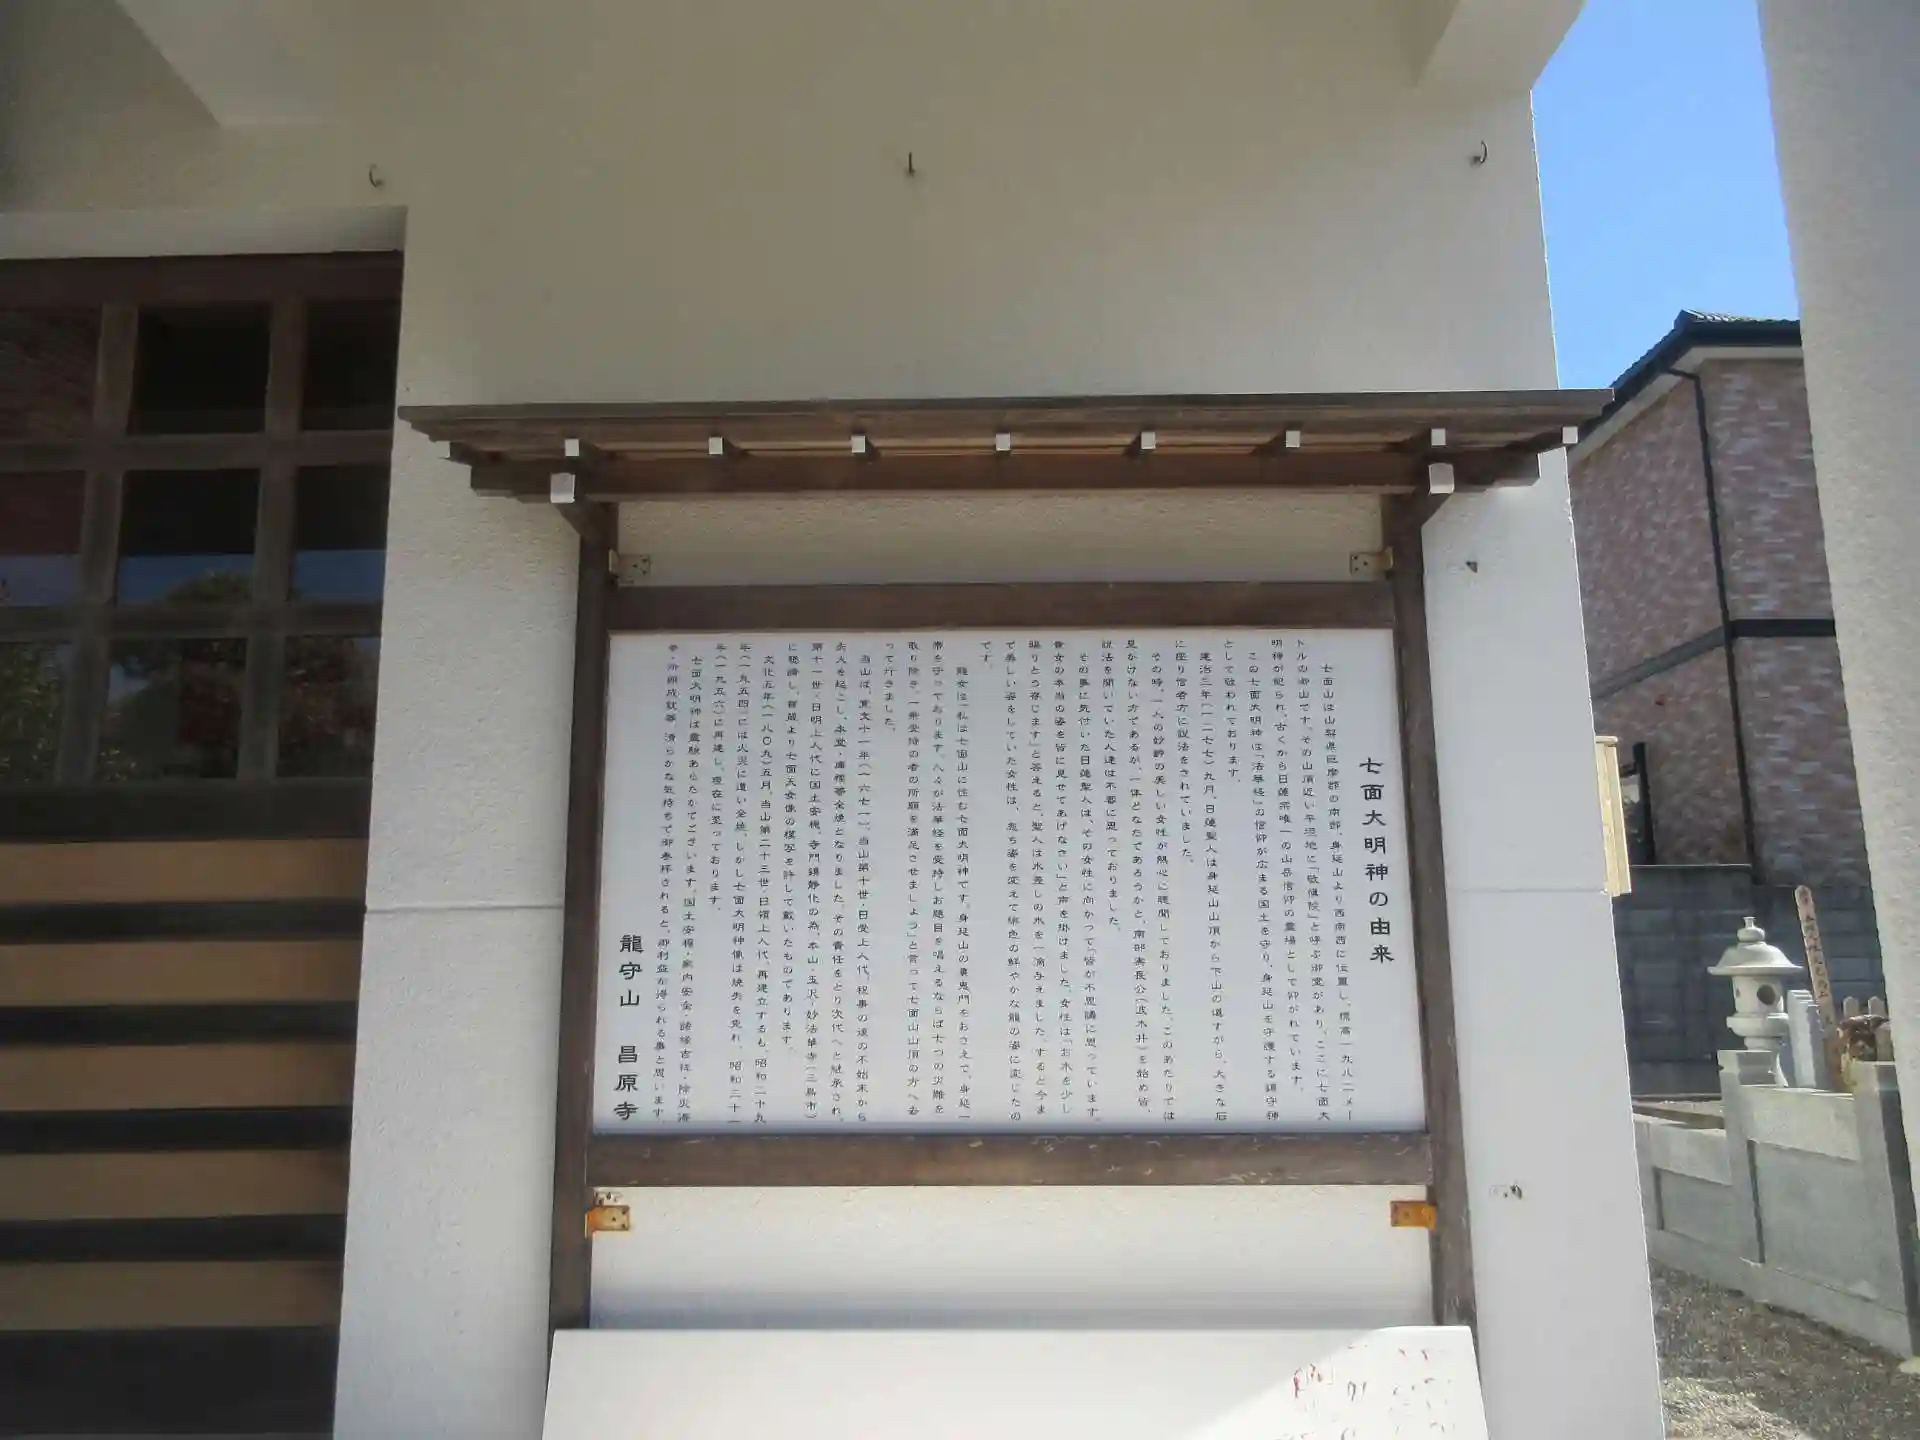 七面大明神の由来
七面山は山梨県巨摩郡の南部、身延山より西南西に位置し、標高一九八二メー
トルの御山です。その山頂近い平坦地に「敬慎院」と呼ぶ御堂があり、ここに七面大
明神が祀られ、古くから日蓮宗唯一の山岳信仰の霊場として仰がれています。
この七面大明神は「法華経」の信仰が広まる国土を守り、身延山を守護する鎮守神
として敬われております。
建治三年(一二七七)九月、日蓮聖人は身延山山頂から下山の道すがら、大きな石
に座り信者方に説法をされていました。
その時、一人の妙齢の美しい女性が熱心に聴聞しておりました。このあたりでは
見かけない方であるが、一体どなたであろうかと、南部実長公(波木井)を始め皆、
説法を聞いていた人達は不審に思っておりました。
その事に気付いた日蓮聖人は、その女性に向かって「皆が不思議に思っています。
貴女の本当の姿を皆に見せてあげなさい」と声を掛けました。女性は「お水を少し
賜りとう存じます」と答えると、聖人は水差しの水を一滴与えました。すると今ま
で美しい姿をしていた女性は、忽ち姿を変えて緋色の鮮やかな龍の姿に変じたの
です。
龍女は「私は七面山に住む七面大明神です。身延山の裏鬼門をおさえて、身延一
帯を守っております。人々が法華経を受持しお題目を唱えるならば七つの災難を
取り除き、一乗受持の者の所願を満足させましょう」と言って七面山山頂の方へ去
って行きました。
当山は、寛文十一年(一六七一)、当山第十世・日受上人代、祝事の後の不始末から
失火を起こし、本堂・庫裡等全焼となりました。その責任をとり次代へと継承され、
第十一世・日明上人代に国土安穏、寺門鎮静化の為、本山・玉沢・妙法華寺(三島市)
に懇請し、曽蔵より七面天女像の模写を許して戴いたものであります。
文化五年(一八〇九)五月、当山第二十三世・日領上人代、再建立するも、昭和二十九
年(一九五四)には火災に遭い全焼。しかし七面大明神像は焼失を免れ、昭和三十一
年(一九五六)に再建し、現在に至っております。
七面大明神は霊験あらたかでございます。国土安穏・家内安全・諸縁吉祥・除災得
幸・所願成就等、清らかな気持ちで御参拝されると、御利益が得られる事と思います。
龍守山 昌原寺